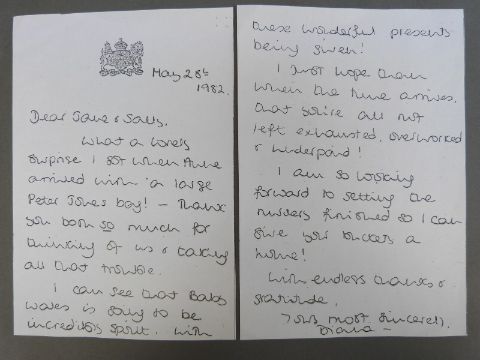 May 28th
1982.
Dear Jane & Sally,
What a lovely
surprise I got when Anne
arrived with a large
Peter Jones bag! - Thank
you both so much for
thinking of us & taking
all that trouble.
I can see that Baby
Wales is going to be
incredibly spoilt, with
these wonderful presents
being given!
I just hope that
when the time arrives,
that you're all not
left exhausted, overworked
& underpaid!
I am so looking
forward to getting the
nursery finished so I can
give your buckets a
home!
With endless thanks &
gratitude,
Yours most sincerely,
Diana -